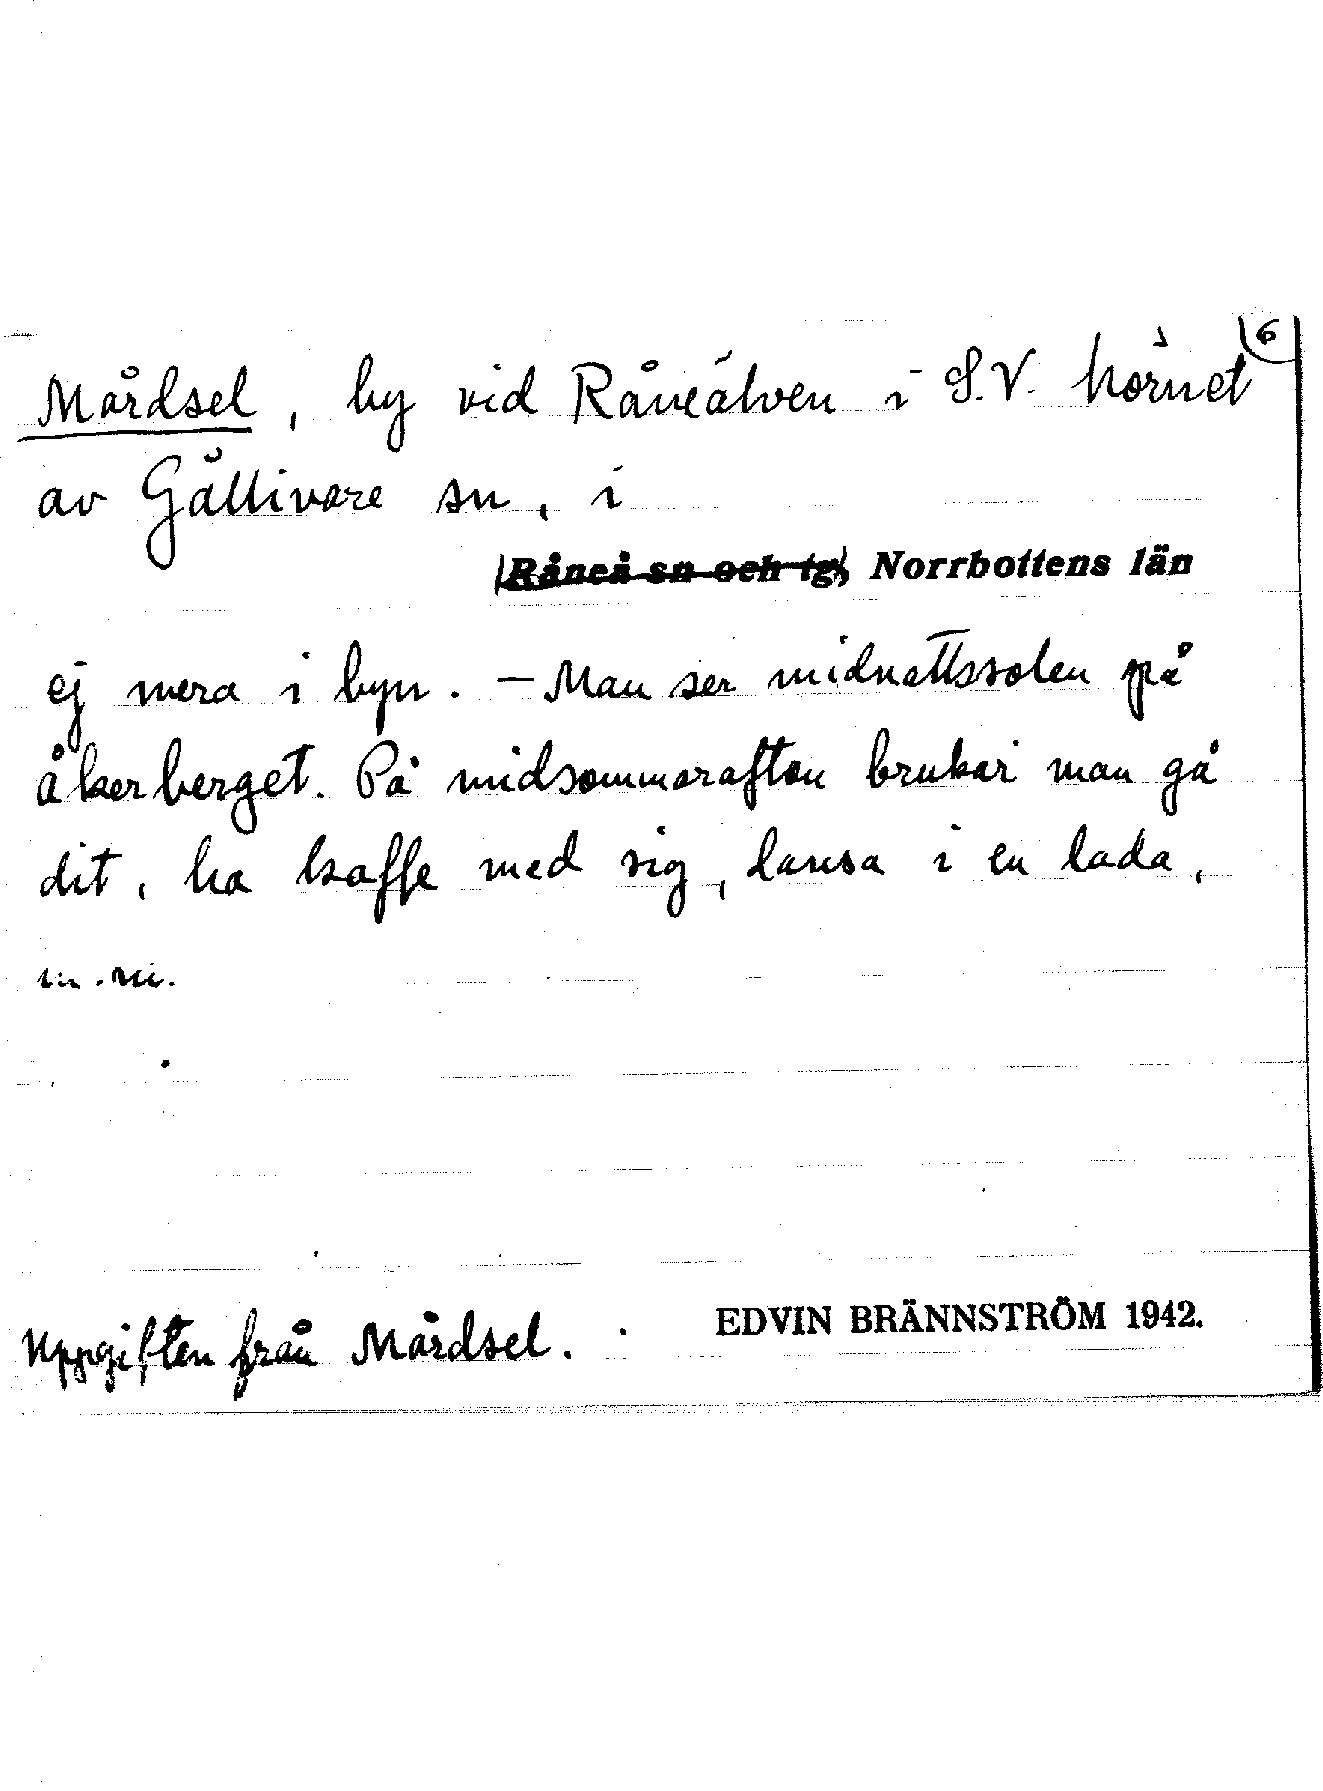 6
Mårdsel, by vid Råneälven i S.V. hörnet
av Gällivare sn, i
Råneå sn och tg, Norrbottens län
ej mera i byn. - Man ser midnattssolen på
åkerberget. På midsommarafton brukar man gå
dit, ha kaffe med sig, dansa i en lada,
m.m.
Uppgiften från Mårdsel.
EDVIN BRÄNNSTRÖM 1942.